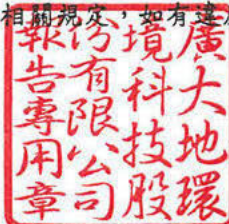 相關規定，如有違
廣大地環
境科技股
份有限公司
報告專用章